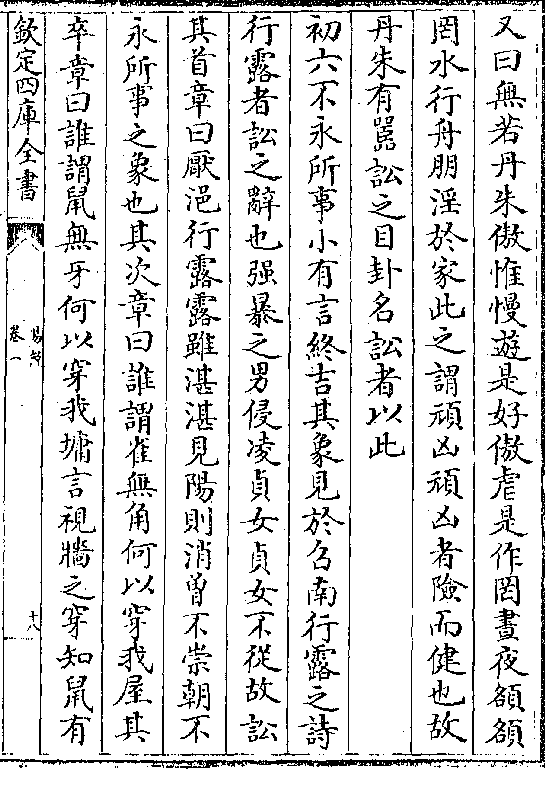 又曰無若丹朱傲惟慢遊是好傲虐是作罔晝夜頟頟
罔水行舟朋淫於家此之謂頑凶頑凶者險而健也故
丹朱有嚚訟之目卦名訟者以此
初六不永所事小有言終吉其象見於召南行露之詩
行露者訟之辭也强暴之男侵凌貞女貞女不從故訟
其首章曰厭浥行露露雖湛湛見陽則消曽不崇朝不
永所事之象也其次章曰誰謂雀無角何以穿我屋其
卒章曰誰謂鼠無牙何以穿我墉言視牆之穿知鼠有
欽定四庫全書
卷一
十八